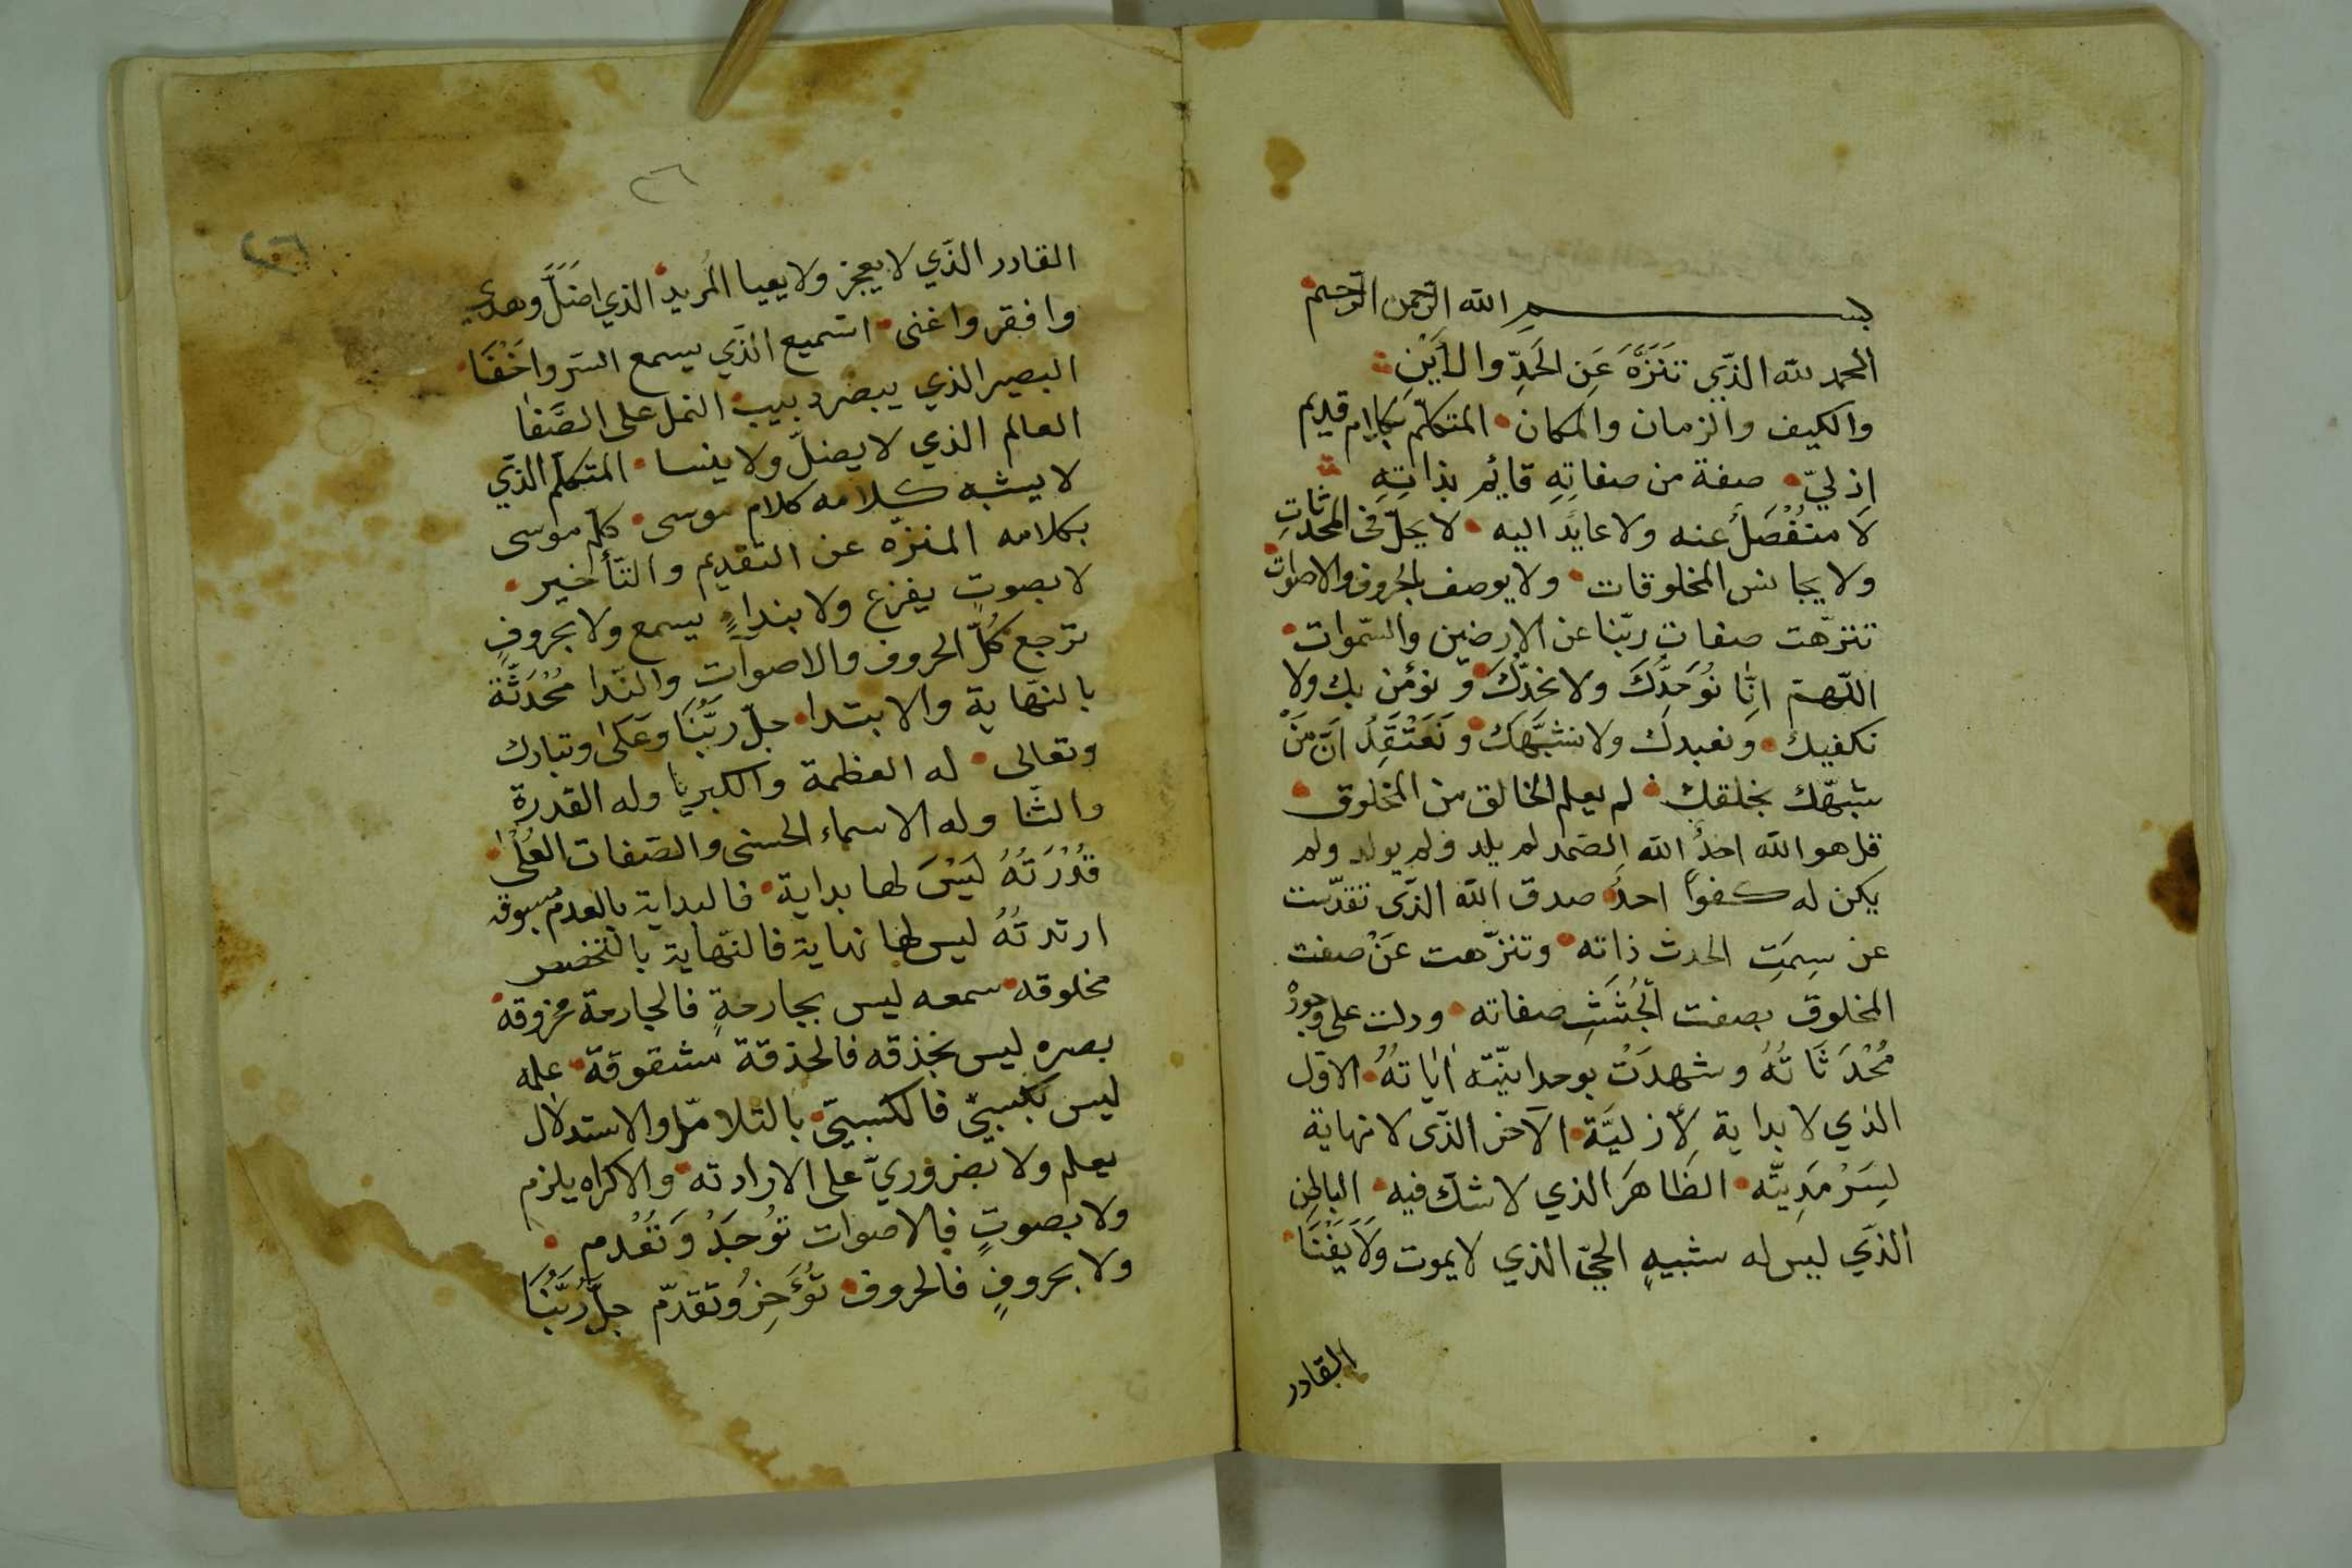 بسم الله الرحمن الرحيم
الحمد لله الذّي تَنَزَّهَ عَنِ الحَدِّ والأَيْنِ
والكيف والزمان والمكان المتكلّم بكلام قديم
ازليّ صفة من صفاتِهِ قايم بذاتِهِ
لا منفُصَلُ عنه ولا عايد اليه لا يحلّ في المحدثاتِ
ولا يجانس المخلوقات ولا يوصف بالحروف والاصوات
تنزّهت صفات ربّنا عن الارضين والسّموات
اللّهمّ انّا نُوَحِدُّكَ ولا نحَدِّكَ ونؤمن بك ولا
نكفيك ونعبدك ولا نشبّهَكَ ونَعْتَقِدُ انَّ مَنْ
شبّهك بخلقك لم يعلم الخالق من المخلوق
قل هو الله احدٌ الله الصّمد لم يلد ولم يولد ولم
يكن له كفوًا احدٌ صدق الله الذّي تقدّست
عن سِمَتِ الحدث ذاته وتنزّهت عَنْ صفت
المخلوق بصفت الجُثَثِ صفاته ودلت على وجودْ
مُحْدَثَاتُهُ وشهدَتْ بوحدانيّته اٰيَاتُهُ الاوّل
الذي لا بداية لأزليَّة الآخر الذّي لا نهاية
لِسَرْمَدِيَّته الظَاهَر الذي لا شكّ فيه الباطن
الذّي ليس له شبيهٍ الحيّ الذي لا يموت ولا يَفْنَا
القادر
٢٦
٢٦
القادر الذّي لا يعجز ولا يعيا المُريد الذي اضَلَّ وهدي
وافقر واغنى السّميع الذّي يسمع السّر واخْفَا
البصير الذي يبصر دبيب النمل على الصَّفا
العالم الذي لا يضلّ ولا ينسا المتكلّم الذّي
لا يشبه كلامه كلام موسى كلّم موسى
بكلامه المنزّه عن التقديم والتّأخير
لا بصوتٍ يفزع ولا بنداءٍ يسمع ولا بحروفٍ
ترجع كُلّ الحروف والاصوات والنّدا مُحْدَثَة
بالنّهاية والابتدا جلّ ربُّنَا وعَلىٰ وتبارك
وتعالى له العظمة والكبريا وله القدرة
والثّنا وله الاسماء الحسنى والصّفات العُلىٰ
قُدْرَتُهُ لَيْسَ لها بداية فالبداية بالعدم مسبوقه
ارتدتُهُ ليس لها نهاية فالنّهاية بالتخصص
مخلوقه سمعه ليس بجارحةٍ فالجارحة مخروقة
بصره ليس بحذقه فالحذقة مشقوقة علمه
ليس بكسبيّ فالكسبيّ بالتلامّل والاستدلال
يعلم ولا بضروريّ على الارادته والاكراه يلزم
ولا بصوتٍ فالاصوات تُوجَدُ وَتُعْدم
ولا بحروفٍ فالحروف تُؤَخِرُ وتقدّم جلَّ رَبُّنَا